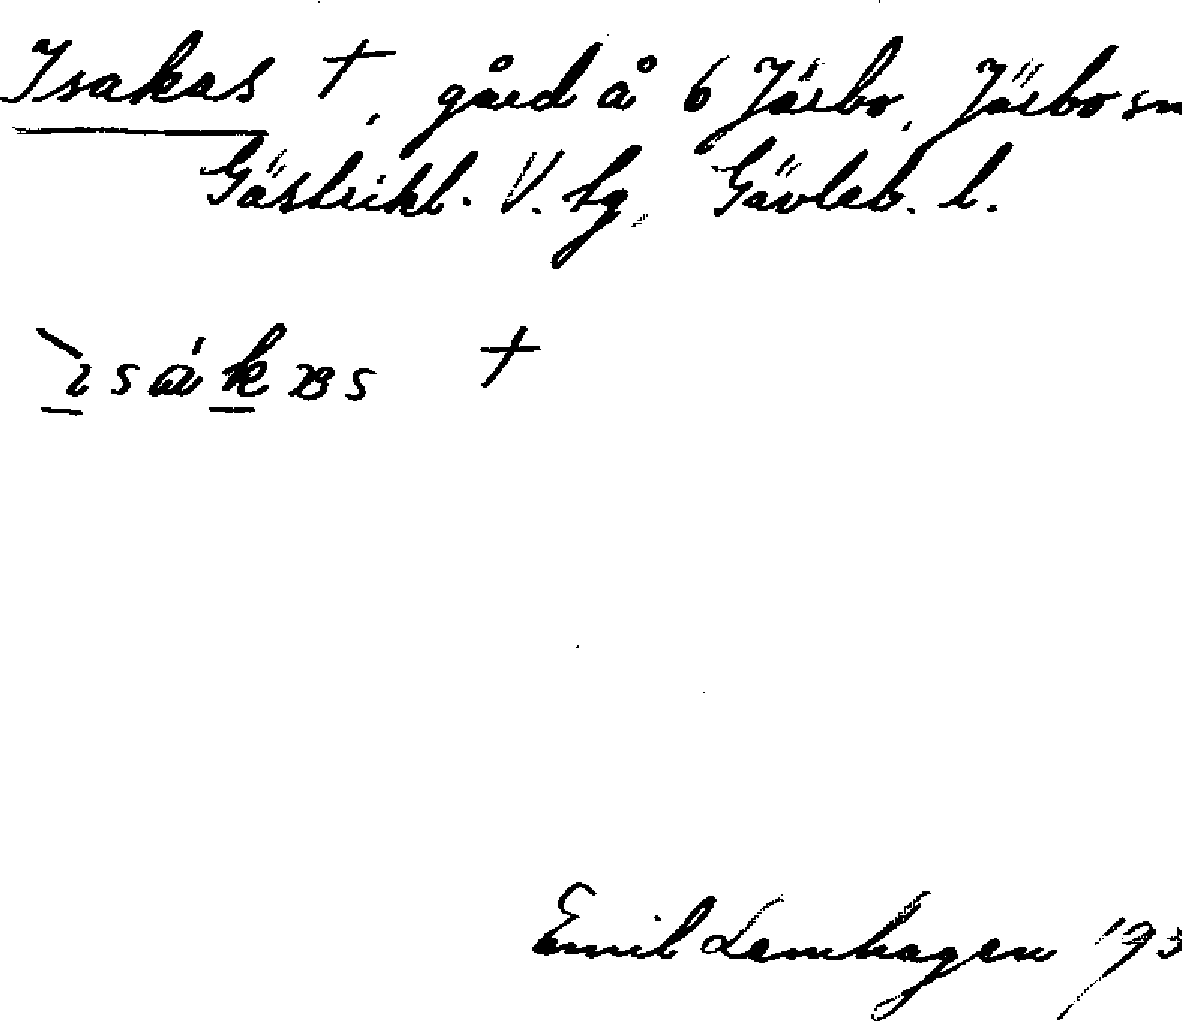 Isakas +, gård å 6 Järbo, Järbo sn
Gästrikl. V. tg, Gävleb. l.
+
Emil Lemhagen 193